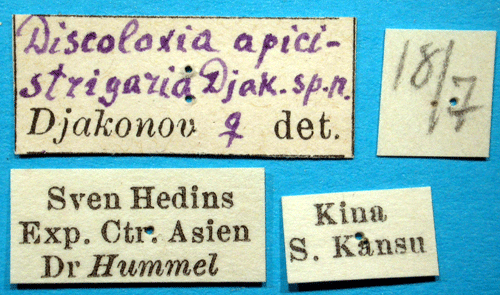 Discoloxia apici-
strigaria Djak. sp. n.
Djakonov ♀ det.
18/7
Sven Hedins
Exp. Ctr. Asien
Dr Hummel
Kina
S. Kansu